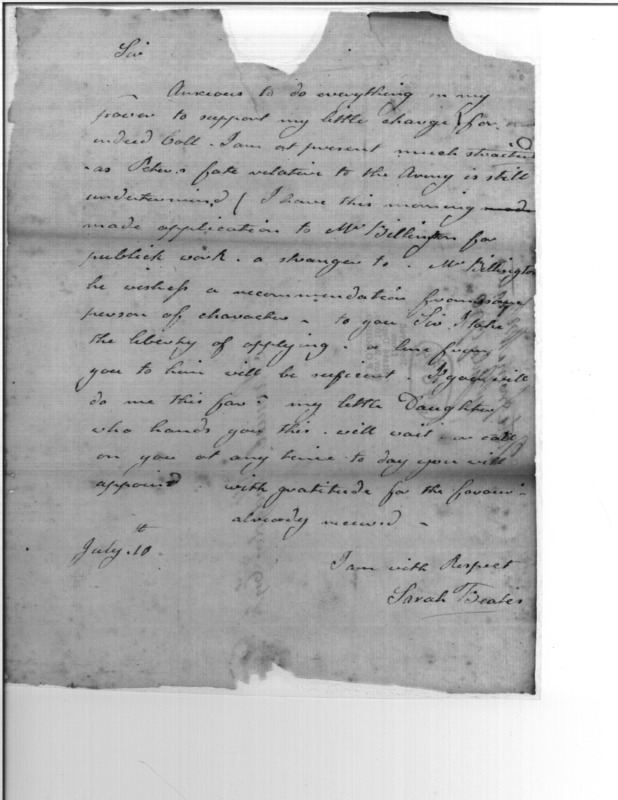 Sir
Anxious to do everything in my
power to support my little charge (for
indeed Coll. I am at present much straited
as Peter's fate relative to the Army is still
undetermind ( I have this morning made
made application to Mr Billington for
publick work. a stranger to. Mr Billington
he wishess a recommendation from some
person off character - to you Sir I take
the liberty of applying. a line from
you to him will be suficient. If you will
do me this favr my little Daughter
who hands you this. will wait. or call
on you at any time to day you will
appoint. with gratitude for the favours
already received -
July. 10th.
I am with Respect
Sarah Beales